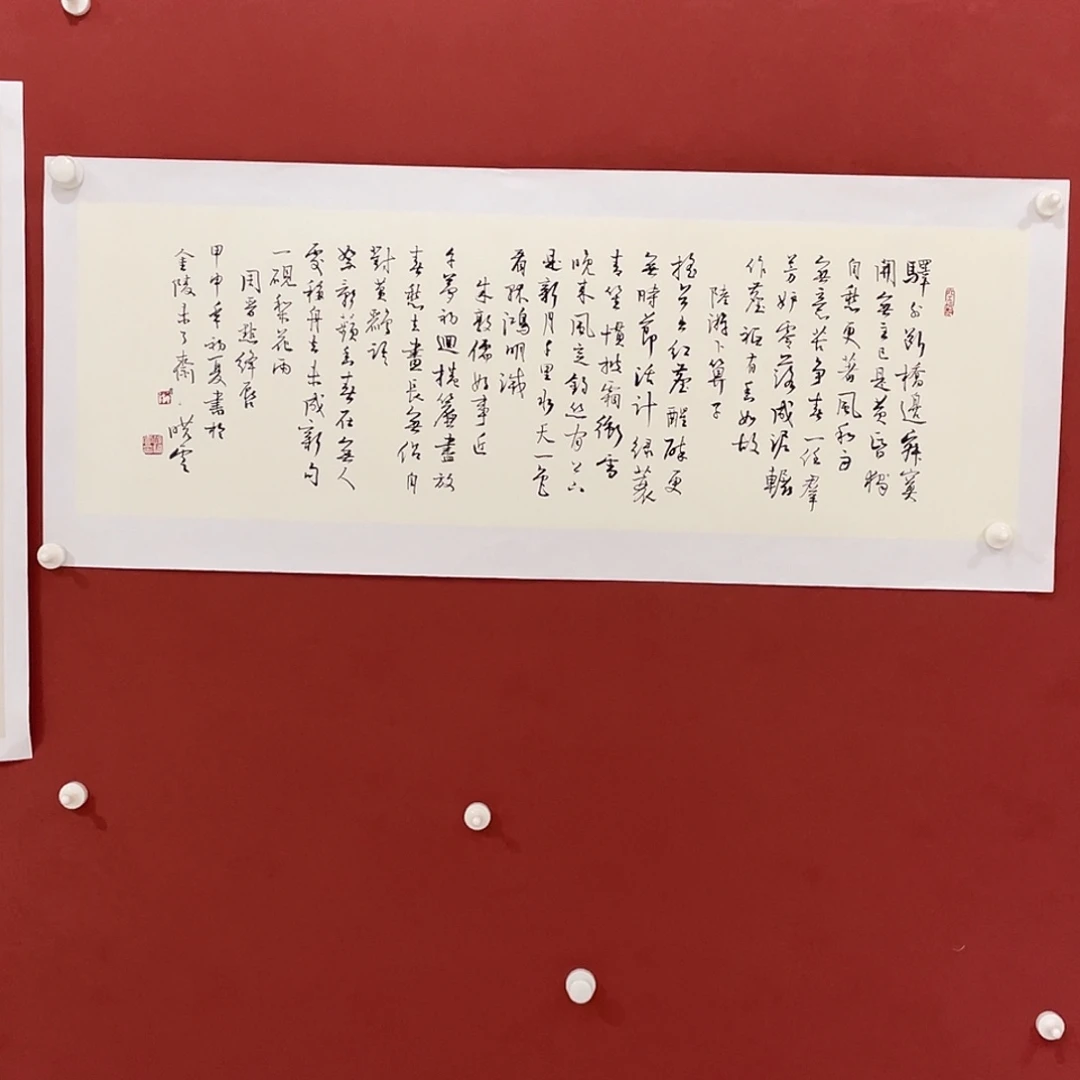 驛外斷橋邊寂寞
開無主已是黃昏獨
自愁更著風和雨
無意苦爭春一任羣
芳妒零落成泥輾
作塵祇有香如故
陸游卜算子
搖首出紅塵醒醉更
無時節活計綠蓑
青笠慣披霜衝雪
晚來風定釣絲閒上下
是新月千里水天一色
看孤鴻明滅
朱敦儒好事近
午夢初迴捲簾盡放
春愁去晝長無侶自
對黃鸝語
絮影蘋香春在無人
處移舟去未成新句
一硯梨花雨
周晉點絳唇
甲申年初夏書於
金陵未了齋